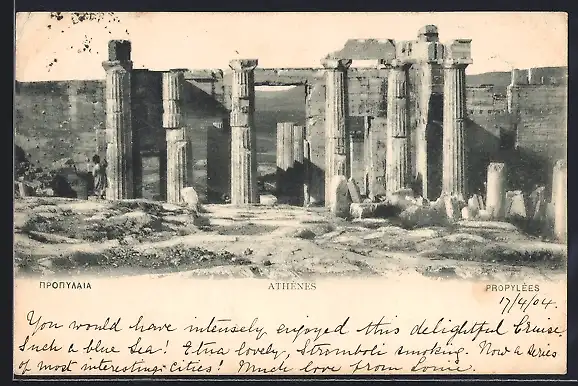 ΠΡΟΠΥΛΑΙΑ ATHÈNES PROPYLÉES
17/4/04.
You would have intensely enjoyed this delightful Cruise.
Such a blue Sea! Etna lovely, Stromboli smoking. Now a series
of most interesting cities! Much love from Louie.